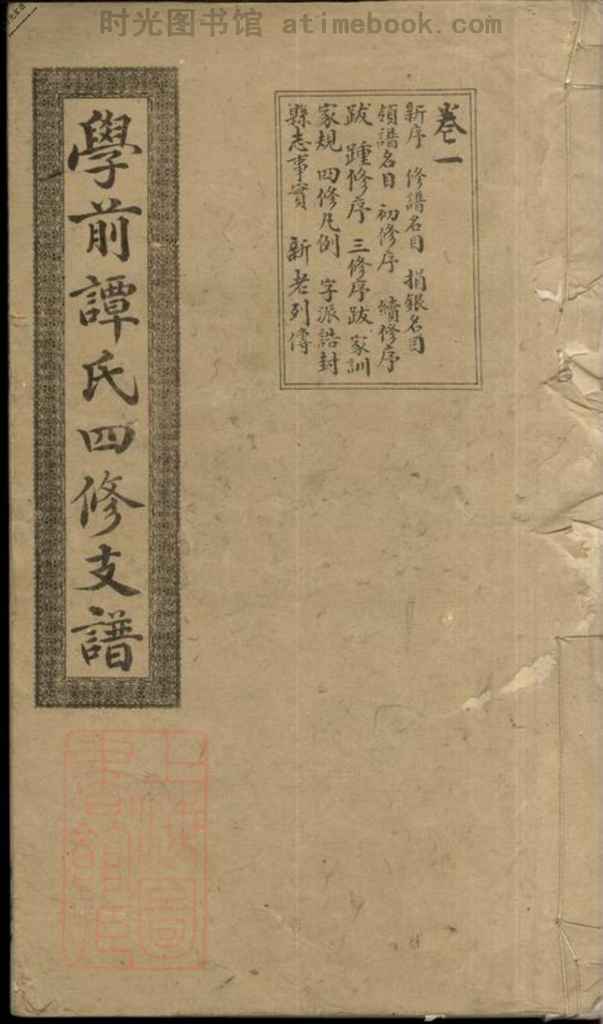 时光图书馆 atimebook.com
卷一
新序 修譜名目 捐銀名目
領譜名目 初修序 續修序
跋 踵修序 三修序跋 家訓
家規 四修凡例 字派誥封
縣志事實 新老列傳
學前譚氏四修支譜
上海圖書館藏